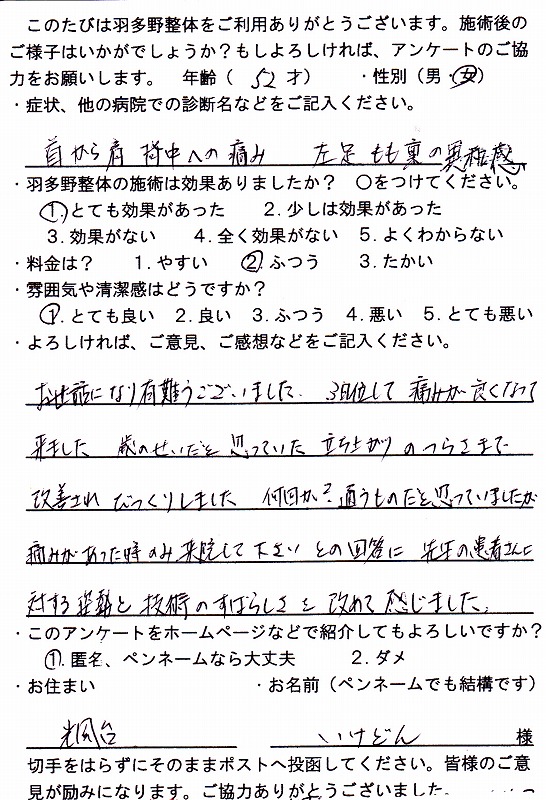 このたびは羽多野整体をご利用ありがとうございます。施術後の
ご様子はいかがでしょうか？もしよろしければ、アンケートのご協
力をお願いします。 年齢（ 52 才） ・性別（男・女）
・症状、他の病院での診断名などをご記入ください。
首から肩 背中への痛み 左足 もも裏の異和感
・羽多野整体の施術は効果ありましたか？ ○をつけてください。
1.とても効果があった 2.少しは効果があった
3.効果がない 4.全く効果がない 5.よくわからない
・料金は？ 1.やすい 2.ふつう 3.たかい
・雰囲気や清潔感はどうですか？
1.とても良い 2.良い 3.ふつう 4.悪い 5.とても悪い
・よろしければ、ご意見、ご感想などをご記入ください。
お世話になり有難うございました。 3日位して 痛みが良くなって
来ました 歳のせいだと思っていた 立ち上がり のつらさまで
改善され びっくりしました 何回か？通うものだと思っていましたが
痛みがあった時のみ来院して下さい との回答に 先生の患者さんに
対する姿勢と 技術のすばらしさを 改めて感じました。
・このアンケートをホームページなどで紹介してもよろしいですか？
1.匿名、ペンネームなら大丈夫 2.ダメ
・お住まい ・お名前（ペンネームでも結構です）
楓台 いけどん 様
切手をはらずにそのままポストへ投函してください。皆様のご意
見が励みになります。ご協力ありがとうございました。